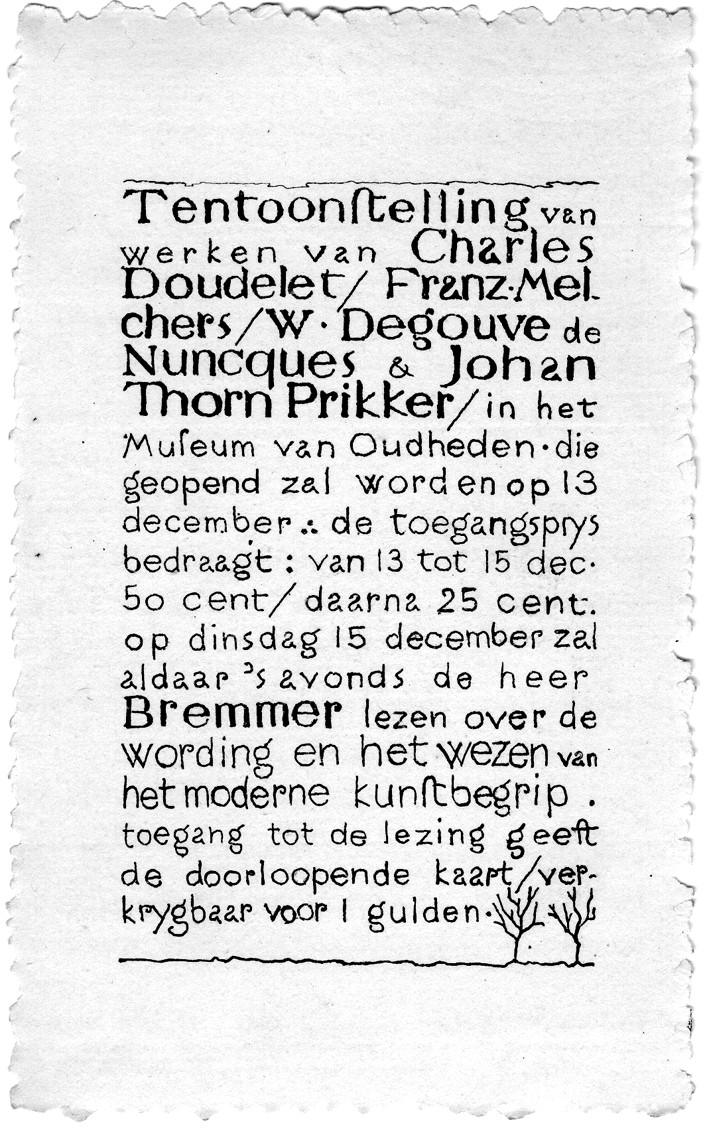 Tentoonſtelling van
werken van Charles
Doudelet/ Franz·Mel-
chers/W· Degouve de
Nuncques & Johan
Thorn Prikker/in het
Muſeum van Oudheden·die
geopend zal worden op 13
december ∴ de toegangsprys
bedraagt : van 13 tot 15 dec·
50 cent/ daarna 25 cent.
op dinsdag 15 december zal
aldaar 's avonds de heer
Bremmer lezen over de
wording en het wezen van
het moderne kunſtbegrip .
toegang tot de lezing geeft
de doorloopende kaart/ver-
krygbaar voor 1 gulden·